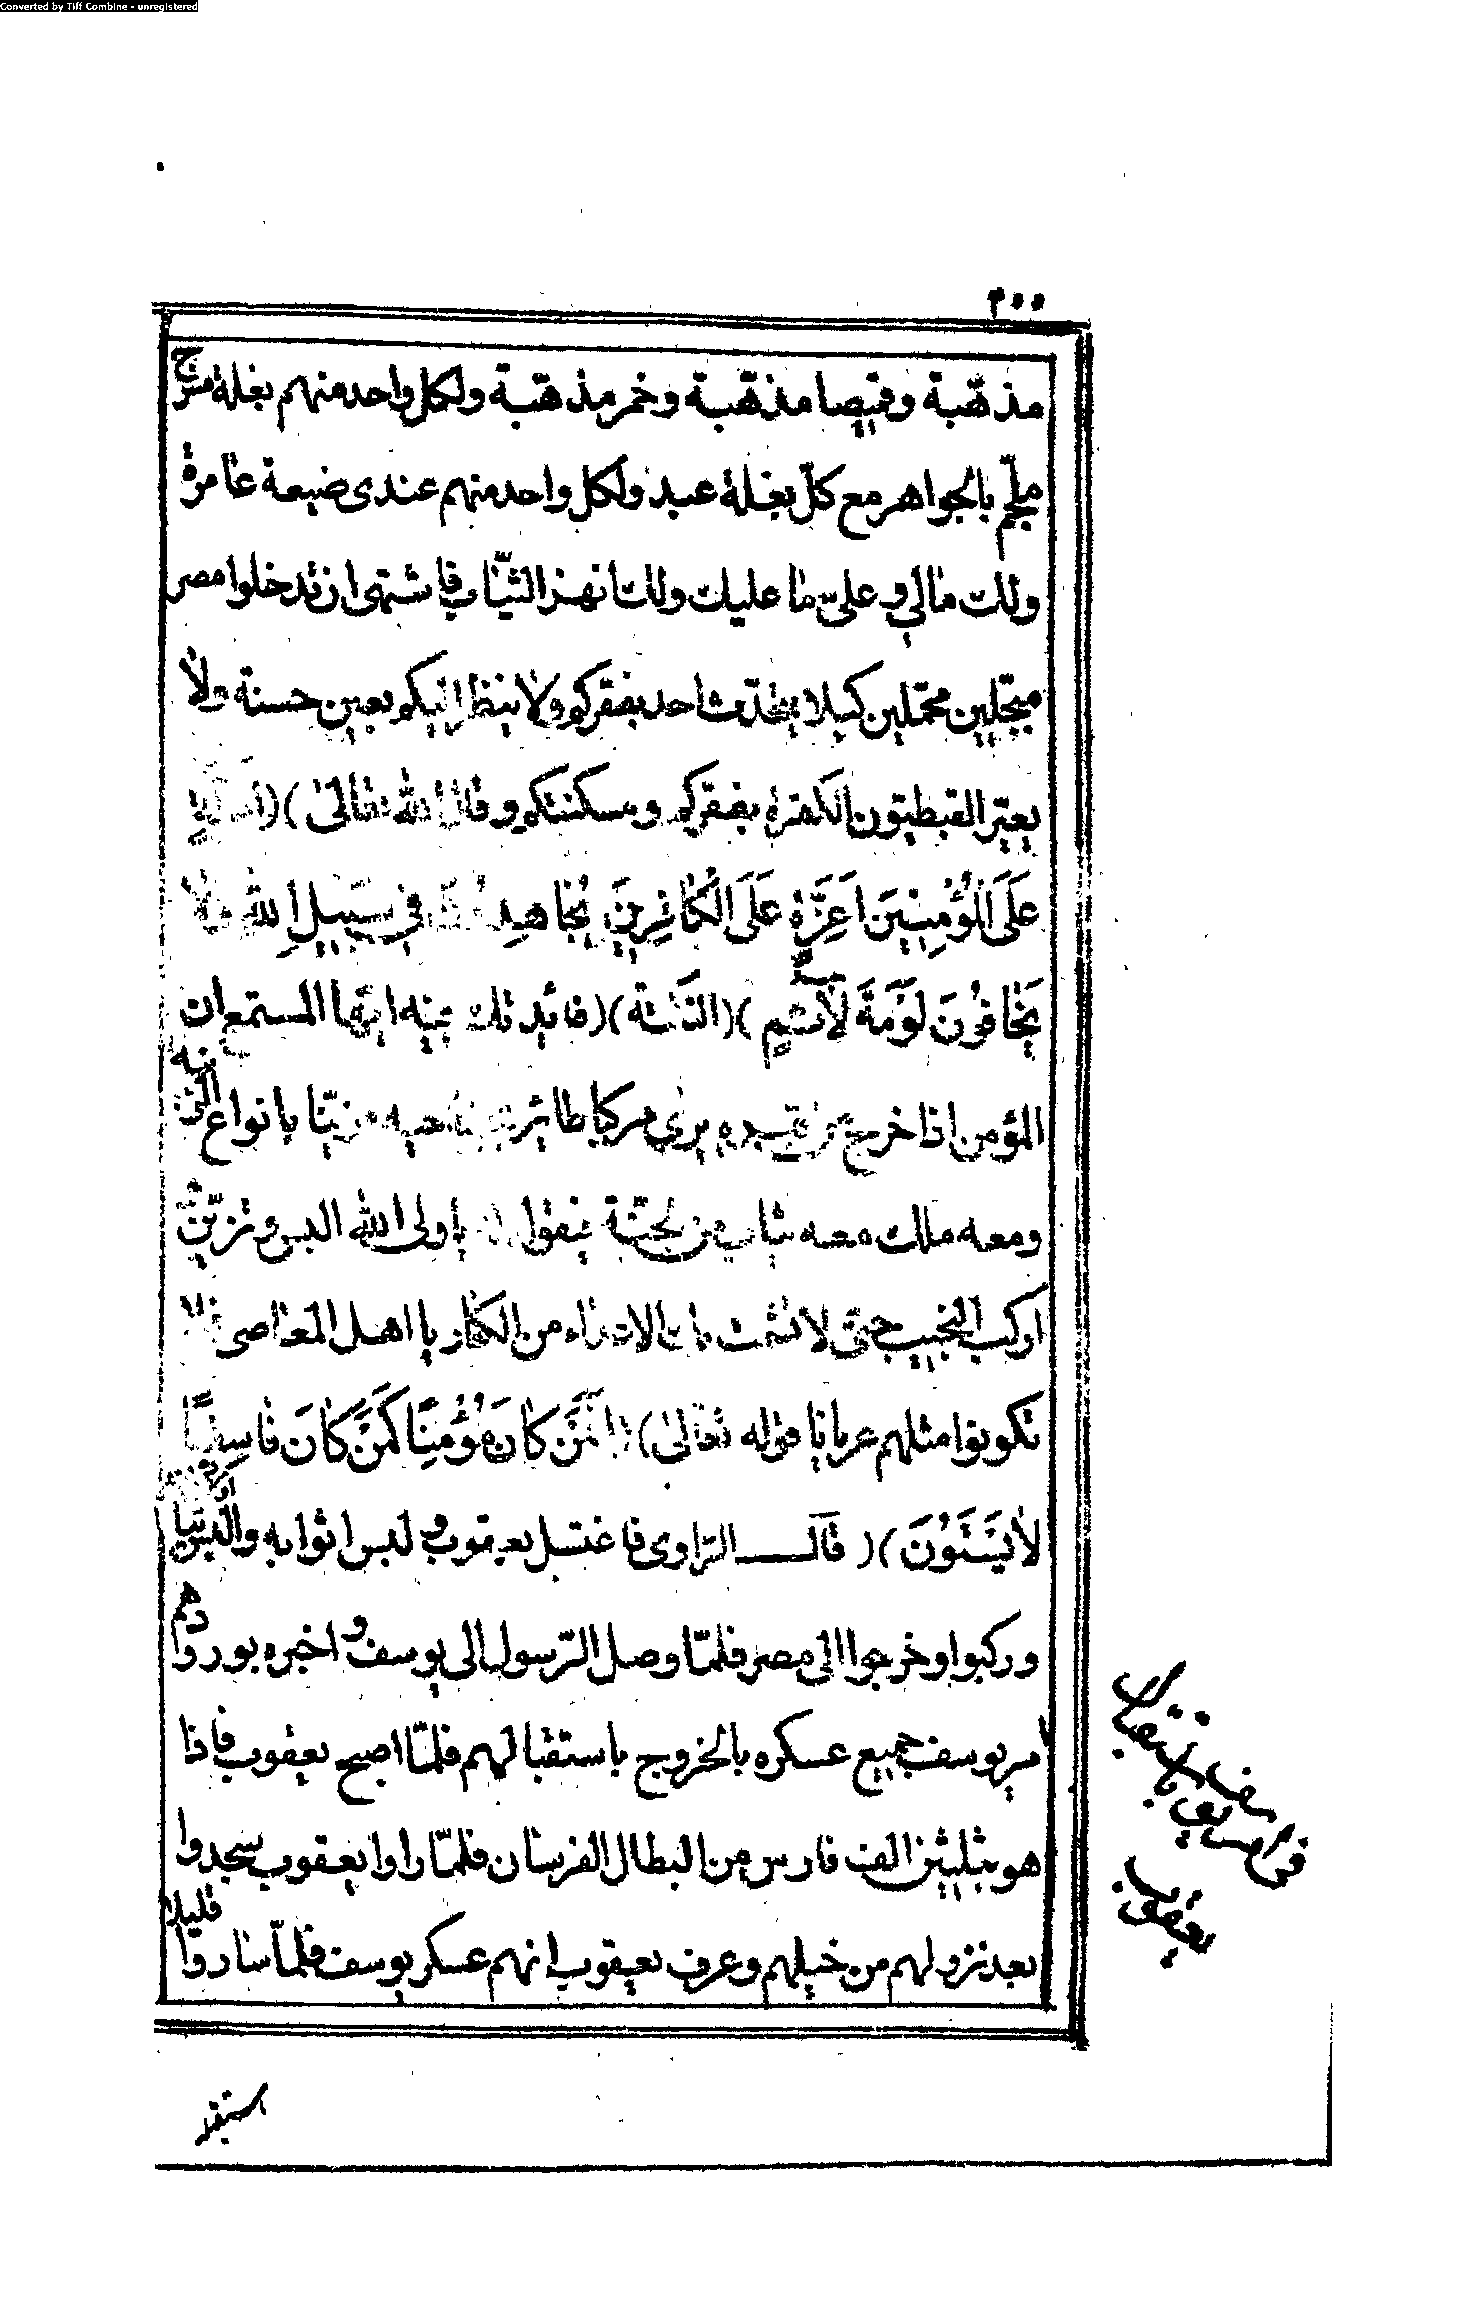 Converted by Tiff Combine - unregistered
٢٠٠
مذهّبة وقميصا مذهّبة وخمر مذهّبة ولكل واحد منهم بغلة مسرج
ملجّم بالجواهر مع كلّ بغلة عبد ولكل واحد منهم عندى ضيعة عامرة
ولك مالي و علىّ ما عليك ولك انهذ الثيّاب فاشتهى ان تدخلوا مصر
مبجّلين محمّلين كيلا يتحدّث احد بفقركم ولا ينظر اليكم بعين حسنة ولا
يعتر القبطيون الكفرة بفقركم ومسكنتكم و قال الله تعالى )( اذلة
عَلَى الْمُؤْمِنِينَ اَعِزَّةٍ عَلَى الْكَافِرِينَ يُجَاهِدُونَ فِى سَبِيلِ اللهِ وَلَا
يَخَافُونَ لَوْمَةَ لَآئِمٍ )( النكتة )( فائد تلك فيه ايّها المستمع ان
المؤمن اذا خرج من قبره يرى مركبا طائر بجناحيه مزيّنا بانواع الزينه
ومعه ملك معه ثياب من الجنّة فيقول يا ولى الله البس وتزيّن
اركب النجيب حتى لا تشمت بك الاعداء من الكفار يا اهل المعاصى فلا
تكونوا مثلهم عريانا قوله تعالى )( اَفَمَنْ كَانَ مُؤْمِنًا كَمَنْ كَانَ فَاسِقًا
لَا يَسْتَوُنَ )( قال الرّاوى فاغتسل يعقوب و لبس اثوابه والبس ثيابا اولاده
وركبوا وخرجوا الى مصر فلمّا وصل الرّسول الى يوسف و اخبره بورودهم
امر يوسف جميع عسكره بالخروج باستقبالهم فلمّا اصبح يعقوب فاذا
هو بثلثين الف فارس من البطال الفرسان فلمّا راوا يعقوب سجدوا
بعد نزولهم من خيلهم وعرف يعقوب انهم عسكر يوسف فلمّا ساروا قليلا
يعقوب
استقبلا